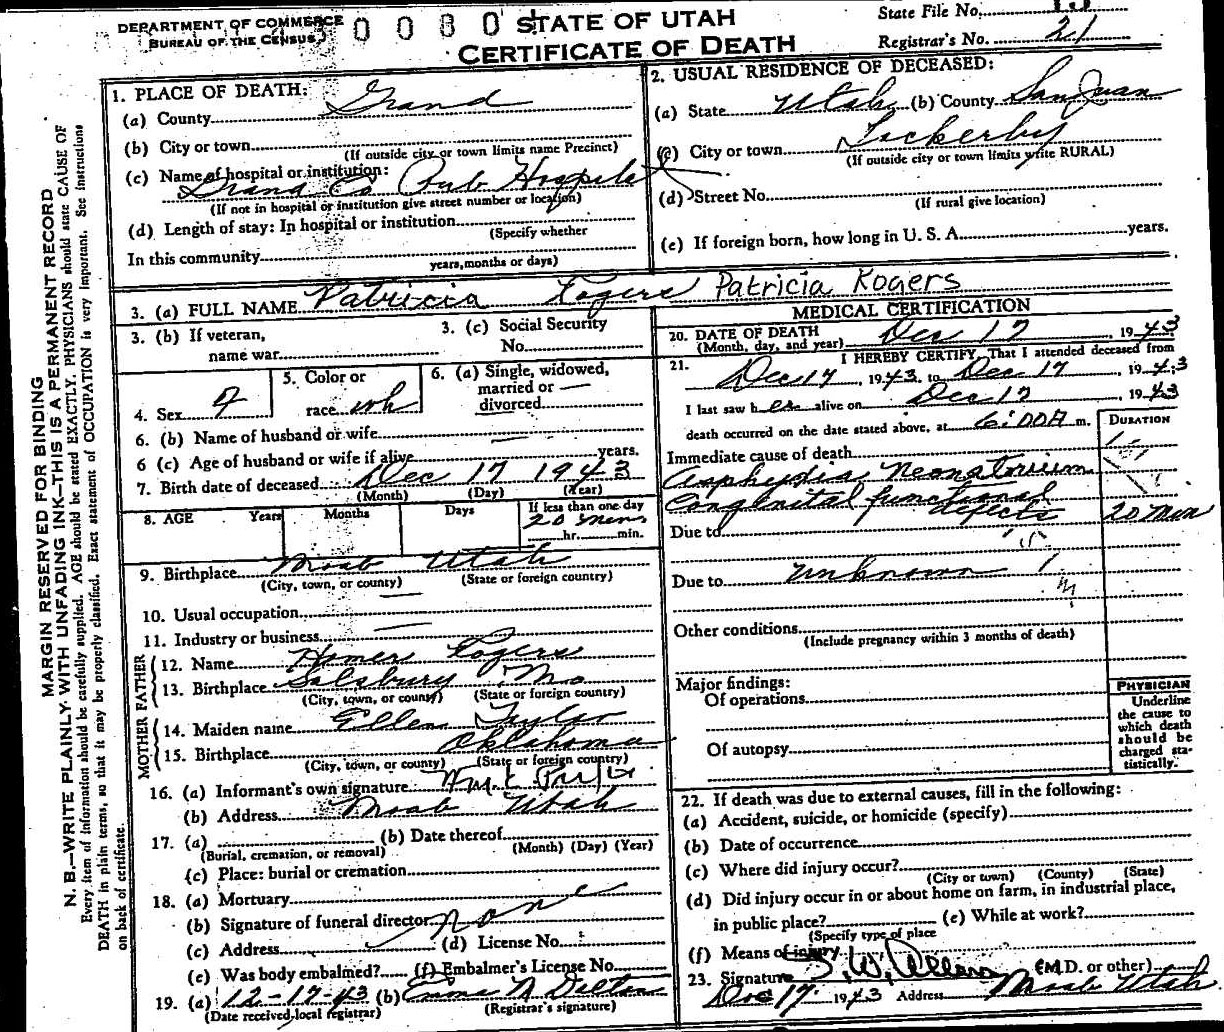 DEPARTMENT OF COMMERCE
BUREAU OF THE CENSUS
0 0 8 0
STATE OF UTAH
CERTIFICATE OF DEATH
State File No.
Registrar's No. 21
MARGIN RESERVED FOR BINDING
N. B.—WRITE PLAINLY WITH UNFADING INK—THIS IS A PERMANENT RECORD
Every item of information should be carefully supplied. AGE should be stated EXACTLY. PHYSICIANS should state CAUSE OF
DEATH in plain terms, so that it may be properly classified. Exact statement of OCCUPATION is very important. See instructions
on back of certificate.
1. PLACE OF DEATH:
(a) County Grand
(b) City or town
(If outside city or town limits name Precinct)
(c) Name of hospital or institution:
Grand Co Pub Hospital
(If not in hospital or institution give street number or location)
(d) Length of stay: In hospital or institution
(Specify whether
In this community
years, months or days)
2. USUAL RESIDENCE OF DECEASED:
(a) State Utah (b) County San Juan
(c) City or town Lockerby
(If outside city or town limits write RURAL)
(d) Street No.
(If rural give location)
(e) If foreign born, how long in U. S. A. years.
3. (a) FULL NAME Patricia Rogers Patricia Rogers
3. (b) If veteran,
name war
3. (c) Social Security
No.
4. Sex F
5. Color or
race wh
6. (a) Single, widowed,
married or
divorced
6. (b) Name of husband or wife
6 (c) Age of husband or wife if alive years.
7. Birth date of deceased Dec 17 1943
(Month) (Day) (Year)
8. AGE Years Months Days If less than one day
20 mins
hr. min.
9. Birthplace Moab Utah
(City, town, or county) (State or foreign country)
10. Usual occupation
11. Industry or business
FATHER
12. Name Homer Rogers
13. Birthplace Salsbury Mo
(City, town, or county) (State or foreign country)
MOTHER
14. Maiden name Ellen Taylor
15. Birthplace Oklahoma
(City, town, or county) (State or foreign country)
16. (a) Informant's own signature
(b) Address Moab Utah
17. (a) (b) Date thereof
(Burial, cremation, or removal) (Month) (Day) (Year)
(c) Place: burial or cremation
18. (a) Mortuary
(b) Signature of funeral director none
(c) Address (d) License No.
(e) Was body embalmed? (f) Embalmer's License No.
19. (a) 12-17-43 (b) Emma N Dalton
(Date received local registrar) (Registrar's signature)
MEDICAL CERTIFICATION
20. DATE OF DEATH Dec 17, 1943
(Month, day, and year)
21. I HEREBY CERTIFY, That I attended deceased from
Dec 17, 1943, to Dec 17, 1943
I last saw her alive on Dec 17 1943
death occurred on the date stated above, at 6:00A m.
DURATION
Immediate cause of death
Asphyxia Neonatorium
Congenital functional
defects 20 Min
Due to
Due to unknown
Other conditions
(Include pregnancy within 3 months of death)
Major findings:
Of operations
Of autopsy
PHYSICIAN
Underline
the cause to
which death
should be
charged sta-
tistically.
22. If death was due to external causes, fill in the following:
(a) Accident, suicide, or homicide (specify)
(b) Date of occurrence
(c) Where did injury occur?
(City or town) (County) (State)
(d) Did injury occur in or about home on farm, in industrial place,
in public place? (e) While at work?
(Specify type of place
(f) Means of injury
23. Signature I. W. Allen (M.D. or other)
Dec 17 1943 Address Moab Utah